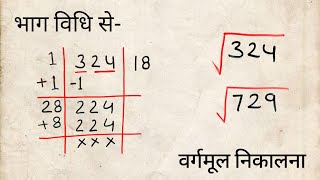 भाग विधि से-
1 324 18
+1 -1
28 224
+8 224
×××
√324
√729
वर्गमूल निकालना